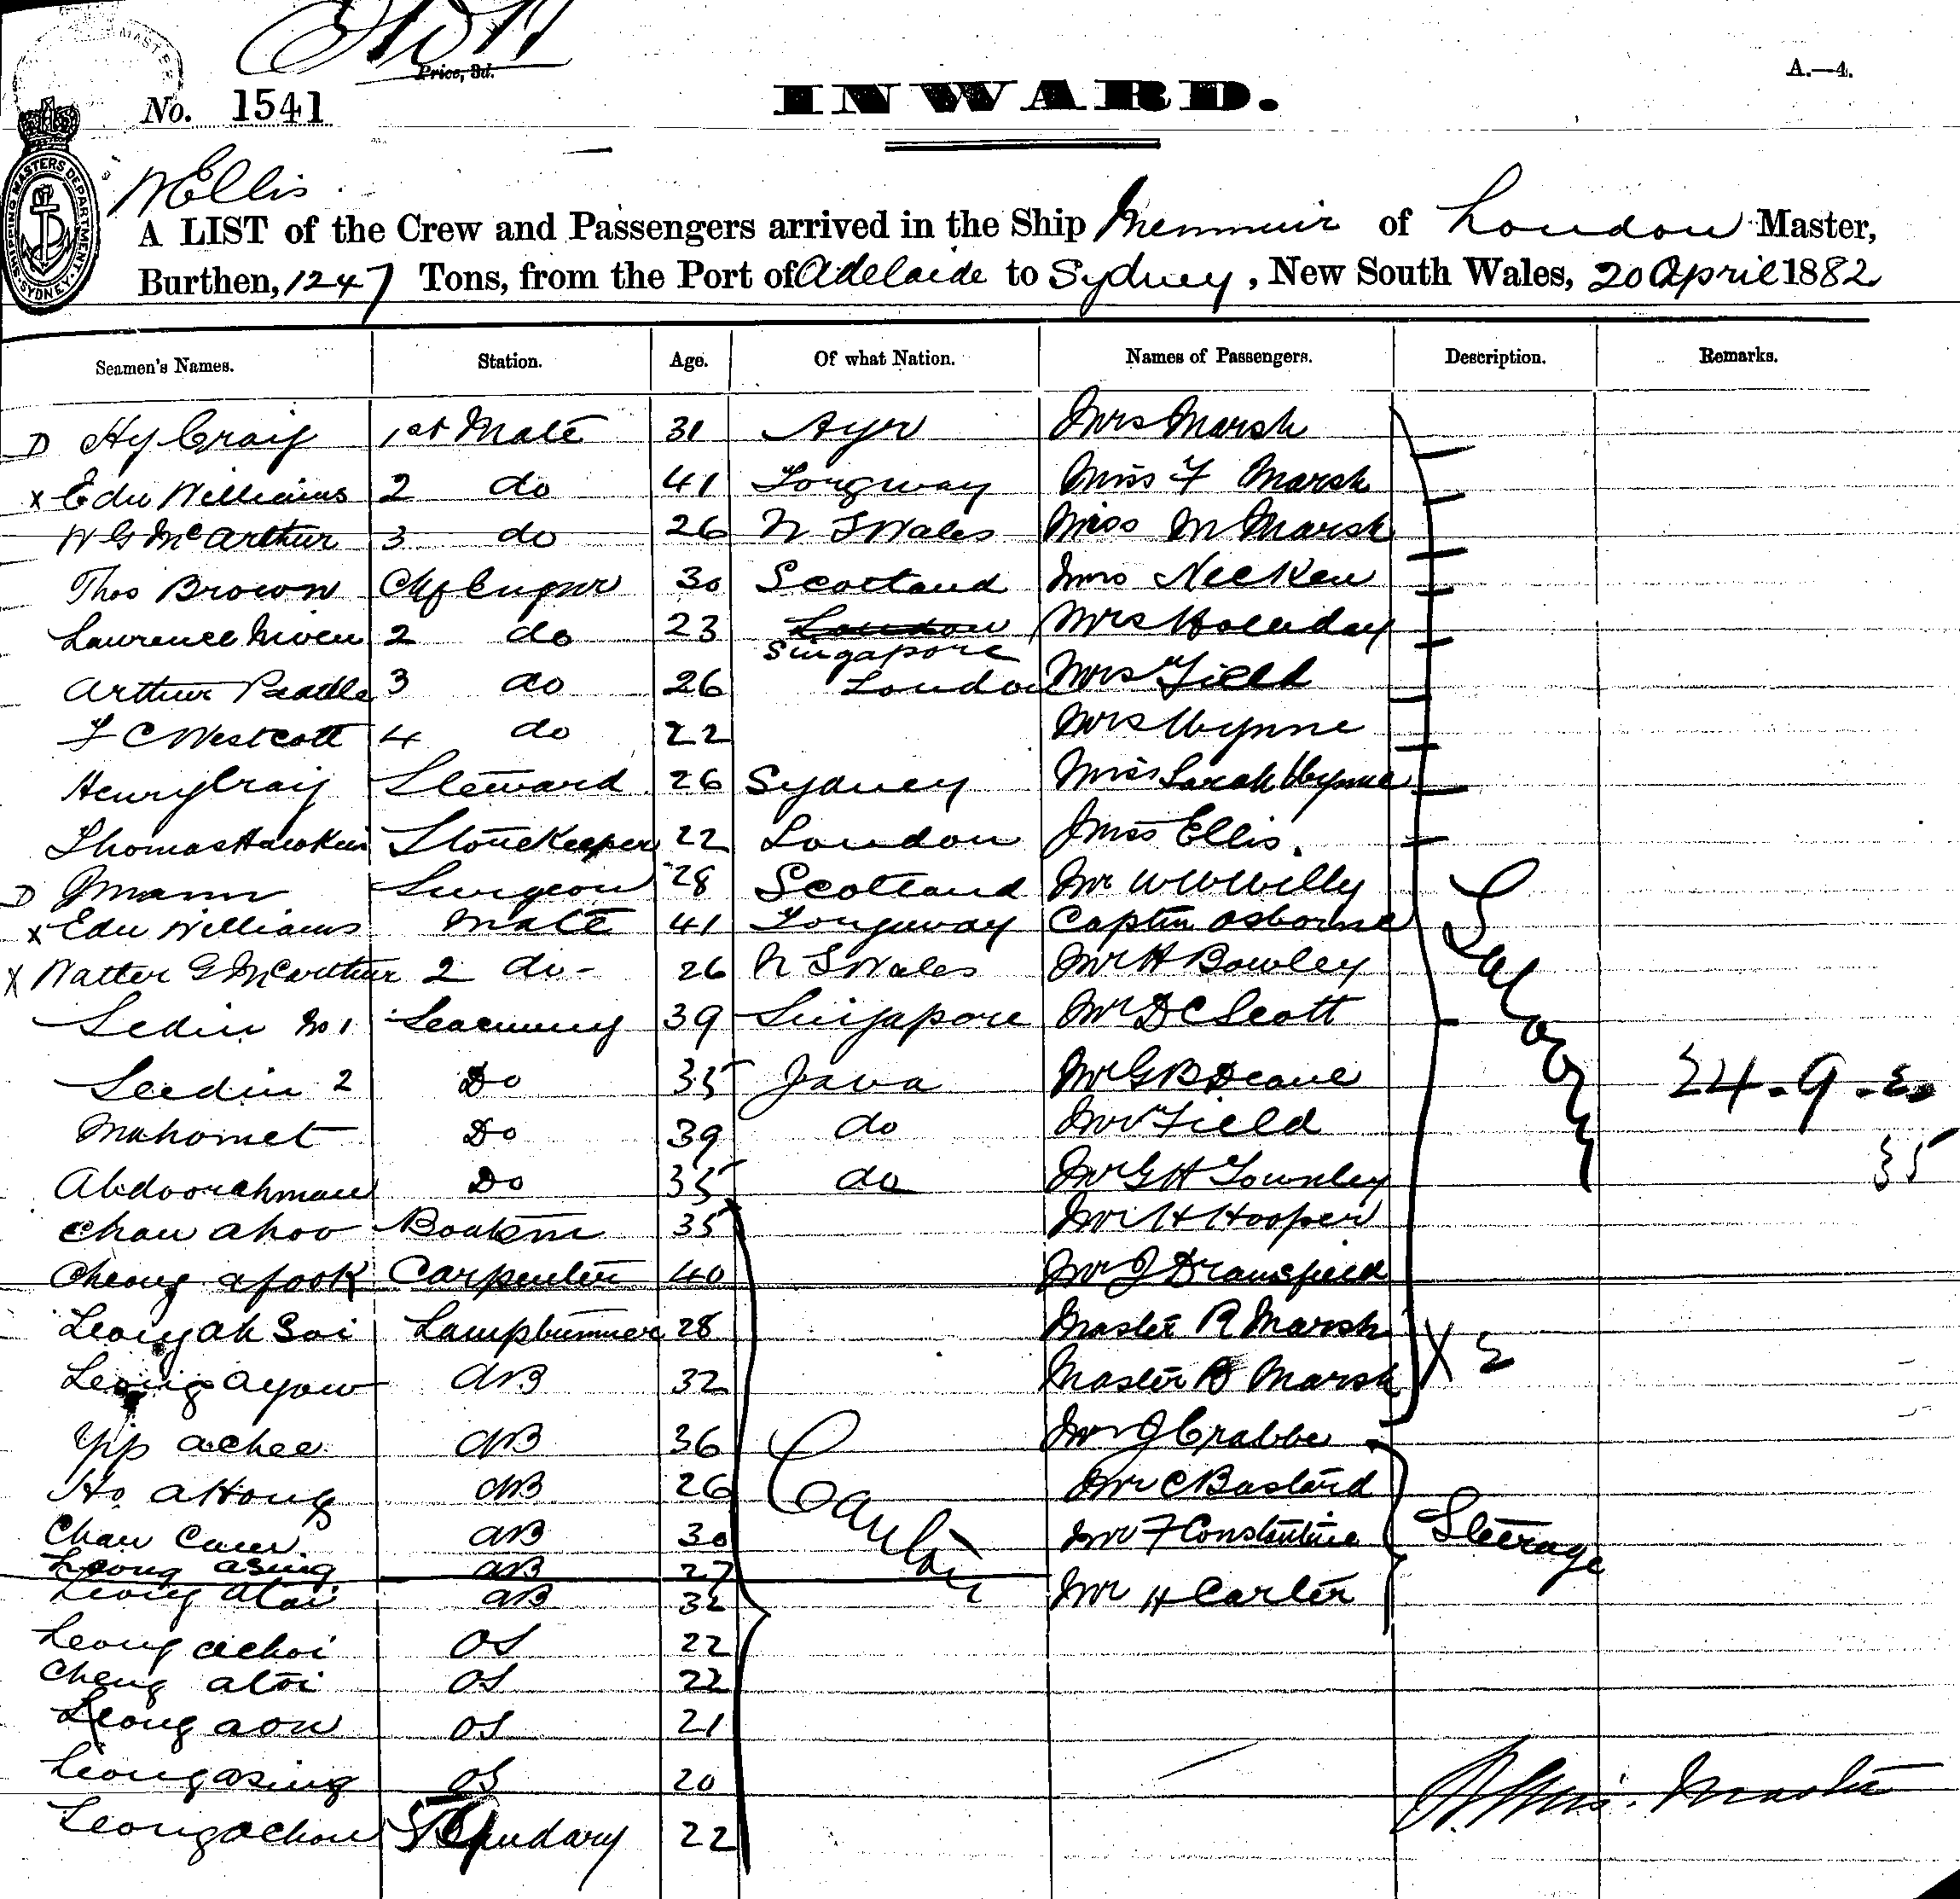 Price, 3d.
A.—4.
No. 1541
INWARD.
MASTER
SHIPPING MASTERS DEPARTMENT SYDNEY
W Ellis
A LIST of the Crew and Passengers arrived in the Ship Menmuir of London Master,
Burthen, 1247 Tons, from the Port of Adelaide to Sydney, New South Wales, 20 April 1882
Seamen's Names. Station. Age. Of what Nation. Names of Passengers. Description. Remarks.
D Hy Craig 1st Mate 31 Ayr Mrs Marsh
x Edw Williams 2 do 41 Miss F Marsh
W G McArthur 3 do 26 N S Wales Miss M Marsh
Thos Brown Chf Engnr 30 Scotland Mrs
Lawrence Niven 2 do 23 London Mrs Holliday
Singapore
Arthur 3 do 26 London Mrs Field
F C Westcott 4 do 22 Mrs Wynne
Henry Craig Steward 26 Sydney Miss Sarah Wynne
Thomas Hawkins StoreKeeper 22 London Miss Ellis.
D J Mann Surgeon 28 Scotland Mr W W Willy
x Edw Williams Mate 41 Captin Osborne
x Walter G McArthur 2 do - 26 N S Wales Mr H Bowley
Sedin No 1 Seacunny 39 Singapore Mr D C Scott
Seedin 2 Do 35 Java Mr G B Deane
Mahomet Do 39 do Mr Field
Abdoorahman Do 35 do Mr G H Townley
Saloon
24 - 9 -
35
Chau ahoo Boatsn 35 Mr H Hooper
Cheong afook Carpenter 40 Mr J Dransfield
Leong ah Soi Lamptrimmer 28 Master R Marsh
X 2
Leong ayow AB 32 Master B Marsh
Yip achee AB 36 Mr J Crabbe
Ho aHong AB 26 Mr C Bastard
Canton
Chau AB 30 Mr F Constantine Steerage
Leong asing AB 27
Leong atai AB 32 Mr H Carter
Leong achoi OS 22
Cheng atoi OS 22
Leong aon OS 21
Leong asing OS 20
W Ellis. Master
Leong achow 22